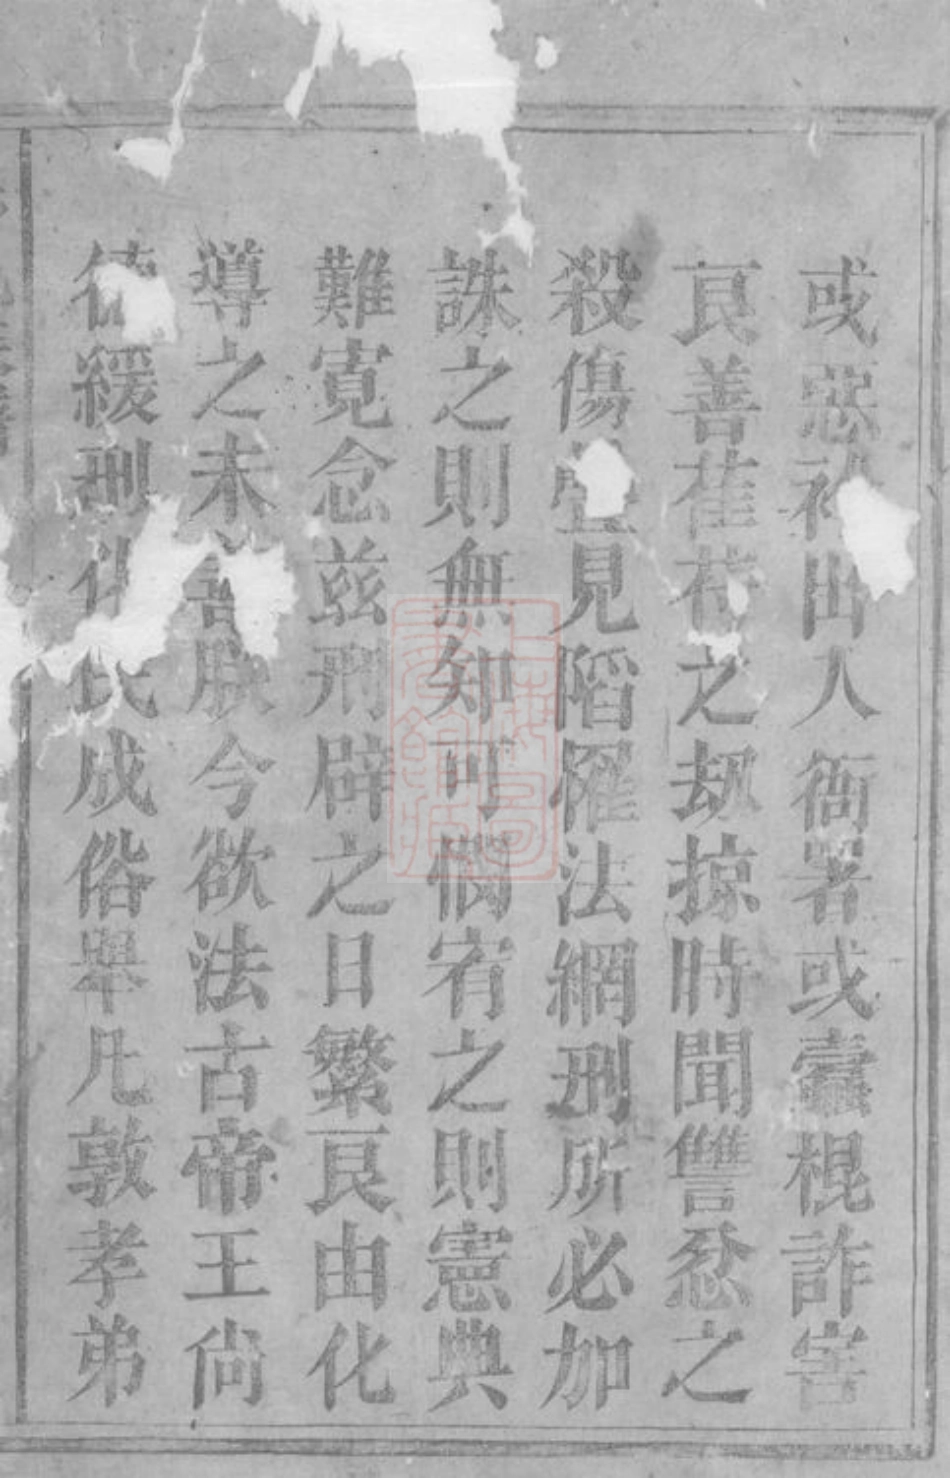 或惡出入衙署或蠹棍詐害
良善萑苻之劫掠時聞讐忿之
殺傷疊見陷罹法網刑所必加
誅之則無知可憫宥之則憲典
難寬念茲刑辟之日繁良由化
導之未善朕今欲法古帝王尚
德緩刑化民成俗舉凡敦孝弟